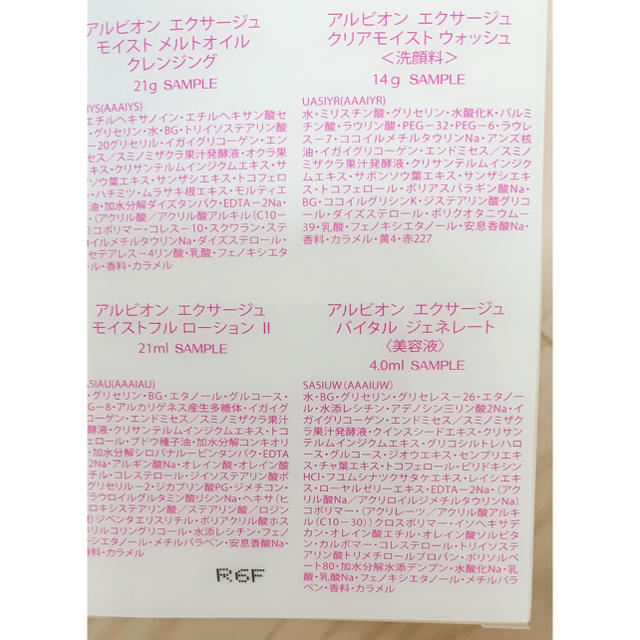 アルビオン エクサージュ
モイスト メルトオイル
クレンジング
21g SAMPLE
IYS(AAAIYS)
エチルヘキサノイン・エチルヘキサン酸セ
・グリセリン・水・BG・トリイソステアリン酸
－20グリセリル・イガイグリコーゲン・エン
ミセス／スミノミザクラ果汁発酵液・オクラ果
キス・クリサンテルムインジクムエキス・サ
ンソウ葉エキス・サンザシエキス・トコフェロ
・ハチミツ・ムラサキ根エキス・モルティエ
油・加水分解ダイズタンパク・EDTA－2Na・
・(アクリル酸／アクリル酸アルキル(C10－
)コポリマー・コレス－10・スクワラン・ステ
コイルメチルタウリンNa・ダイズステロール・
セテアレス－4リン酸・乳酸・フェノキシエタ
ル・香料・カラメル
アルビオン エクサージュ
クリアモイスト ウォッシュ
＜洗顔料＞
14g SAMPLE
UA5IYR(AAAIYR)
水・ミリスチン酸・グリセリン・水酸化K・パルミ
チン酸・ラウリン酸・PEG－32・PEG－6・ラウレ
ス－7・ココイルメチルタウリンNa・アンズ核
油・イガイグリコーゲン・エンドミセス／スミノ
ミザクラ果汁発酵液・クリサンテルムインジク
ムエキス・サボンソウ葉エキス・サンザシエキ
ス・トコフェロール・ポリアスパラギン酸Na・
BG・ココイルグリシンK・ジステアリン酸グリコ
ール・ダイズステロール・ポリクオタニウム－
39・乳酸・フェノキシエタノール・安息香酸Na・
香料・カラメル・黄4・赤227
アルビオン エクサージュ
モイストフル ローション II
21ml SAMPLE
5IAU(AAAIAU)
・グリセリン・BG・エタノール・グルコース・
G－8・アルカリゲネス産生多糖体・イガイグ
コーゲン・エンドミセス／スミノミザクラ果汁
酵液・クリサンテルムインジクムエキス・トコ
ェロール・ブドウ種子油・加水分解コンキオリ
・加水分解シロバナルーピンタンパク・EDTA
2Na・アルギン酸Na・オレイン酸・オレイン酸
チル・コレステロール・ジイソステアリン酸ポ
グリセリル－2・ジカプリル酸PG・ジメチコン・
ラウロイルグルタミン酸リシンNa・ヘキサ(ヒ
ロキシステアリン酸／ステアリン酸／ロジン
)ジペンタエリスリチル・ポリアクリル酸ホス
リルコリングリコール・水添レシチン・フェノ
シエタノール・メチルパラベン・安息香酸Na・
香料・カラメル
アルビオン エクサージュ
バイタル ジェネレート
〈美容液〉
4.0ml SAMPLE
SA5IUW(AAAIUW)
水・BG・グリセリン・グリセレス－26・エタノー
ル・水添レシチン・アデノシン三リン酸2Na・イ
ガイグリコーゲン・エンドミセス／スミノミザ
クラ果汁発酵液・クインスシードエキス・クリサン
テルムインジクムエキス・グリコシルトレハロ
ース・グルコース・ジオウエキス・センブリエキ
ス・チャ葉エキス・トコフェロール・ピリドキシン
HCl・フユムシナツクサタケエキス・レイシエキ
ス・ローヤルゼリーエキス・EDTA－2Na・(アク
リル酸Na／アクリロイルジメチルタウリンNa)
コポリマー・(アクリレーツ／アクリル酸アルキ
ル(C10－30))クロスポリマー・イソヘキサデ
カン・オレイン酸エチル・オレイン酸ソルビタ
ン・カルボマー・コレステロール・トリイソステ
アリン酸トリメチロールプロパン・ポリソルベ
ート80・加水分解水添デンプン・水酸化Na・乳
酸・乳酸Na・フェノキシエタノール・メチルパラ
ベン・香料・カラメル
R6F